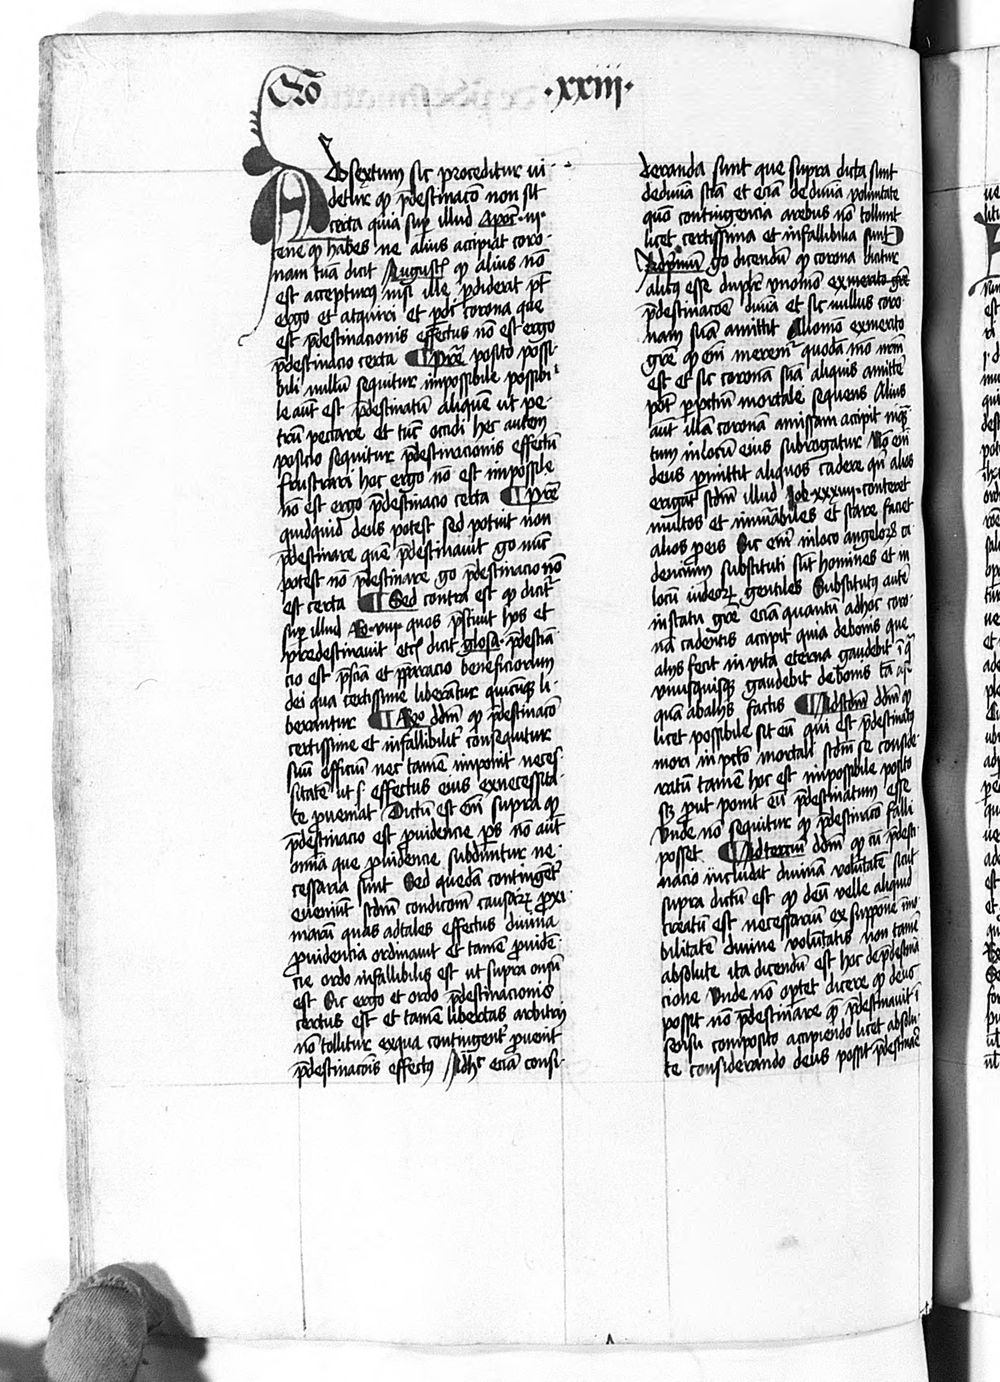 Qo̅ ·xxiij·
Ad sextum sic proceditur vi
detur qɔ p̅destinaco̅ non sit
certa quia sup̲ illud Apoc̅ ·iij·
tene qɔ habes ne alius accipiat coro
nam tua̅ dicit Augustꝰ qɔ alius no̅
est acceptur̲ꝰ nisi ille p̲diderit p̅t
ergo et acquiri et p̲di corona que
est p̅destinacionis effectus no̅ est ergo
p̅destinacio certa ¶ P̅re̅ posito possi
bili nullu̅ sequitur impossibile possibi
le aut̅ est p̅destinatu̅ alique̅ ut pe
tru̅ peccare et tu̅c occidi hec autem
posicio sequitur p̅destinacionis effectu̅
frustrari hoc ergo no̅ est impossi̅le
no̅ est ergo p̅destinacio certa ¶ P̅re̅
quidquid deus potest sed potuit non
p̅destinare que̅ p̅destinauit go nu̅c
potest no̅ p̅destinare go p̅destinacio no̅
est certa ¶ Sed contra est qɔ dicit̲
sup̲ illud Ro·viij· quos p̅sciuit hos et
predestinauit etcꝰ dicit glosa p̅destina̅
cio est p̅sci̅a et p̅paracio beneficiorum
dei qua certissime libera̅tur quicu̅qꝫ li
berantur ¶ Rn̅o dd̅m qɔ p̅destinaco̅
certissime et infallibilit̲ consequitur
suu̅ effectu̅ nec tame̅ imponit neces
sitate̅ ut sꝫ effectus eius ex necessita
te p̲ueniat Dictu̅ est eni̅ supra qɔ
p̅destinacio est p̲uidencie p̅s no̅ aut̅
omnia que p̲uidencie subdu̅ntur ne
cessaria sunt Sed queda̅ continge̅t̲
eueniu̅t scd̅m condicoe̅m causar̲ꝫ p̲xi
maru̅ quas ad tales effectus diuina
p̲uidentia ordinauit et tamen p̲uide̅
cie ordo infallibilis est ut supra oste̅su̅
est Sic ergo et ordo p̅destinacionis
certus est et tame̅ libertas arbitrij
no̅ tollitur ex qua contingent̲ p̲uenit
p̅destinacio̅is effectꝰ Ad hꝰ ecia̅ consi
deranda sunt que supra dicta sunt
de diuia̅ sci̅a et ecia̅ de diuia̅ voluntate
que̅ contingencia a rebus no̅ tollunt
licet certissima et infallibilia sunt
Ad p̲mu̅ go dicendu̅ qɔ corona dicitur
alicꝰ esse duplr̅ vnomo̅ ex merito gr̅e
p̅destinacoe̅ diuia̅ et sic nullus coro
nam sua̅ amittit Aliomo̅ ex merito
gre̅ qɔ eni̅ merem̲ quoda̅ mo̅ nr̅m
est et sic corona̅ sua̅ aliquis amitte̅
pot̅ p̲ pcc̅m mortale sequens Alius
aut̅ illa̅ corona̅ amissam accipit inqꝫ
tum in locu̅ eius subrogatur No̅ eni̅
deus p̲mittit aliquos cadere qi̅ alios
erigat scd̅m illud Job·xxxiiij·conteret
multos et innu̅abiles et stare faciet
alios p̲ eis Sic eni̅ in loco angelorꝫ ca
dencium substituti su̅t homines et in
locu̅ iudeorꝫ gentiles Substitutꝰ aute̅
in statu gre̅ ecia̅ quantu̅ ad hoc coro
na̅ cadentis accipit quia de bonis que
alijs fecit in vita eterna gaudebit
vnusquisqꝫ gaudebit de bonis ta̅ a se
qua̅ ab alijs factis ¶ Ad scd̅m dd̅m qɔ
licet possibile sit eu̅ qui est p̅destinatꝰ
mori in pcc̅o mortali scd̅m se conside
ratu̅ tamen hoc est impossibile posito
sꝫ prut ponit eu̅ p̅destinatum esse
vnde no̅ sequitur qɔ p̅destinaco̅ falli
posset ¶ Ad terciu̅ dd̅m qɔ cu̅ p̅desti
nacio includat diuina̅ volu̅tate̅ sicut
supra dictu̅ est qɔ deu̅ velle aliquid
creatu̅ est necessariu̅ ex suppone i̅mo
bilitate̅ diuine volu̅tatis non tame̅
absolute ita dicendu̅ est hoc de p̅destina
cione vnde no̅ op̲tet dicere qɔ deus
possit no̅ p̅destinare que̅ p̅destinauit i̅
sensu composito accipiendo licet absolu
te considerando deus possit p̅destinare